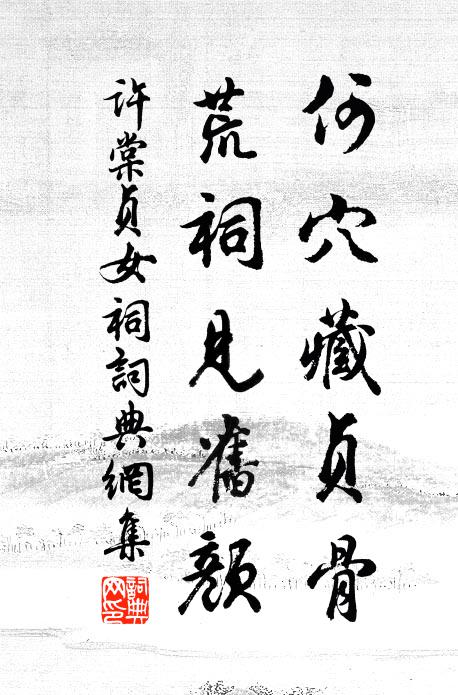 何穴藏貞骨
荒祠見舊顏
許棠貞女祠詞典網集
詞典網印